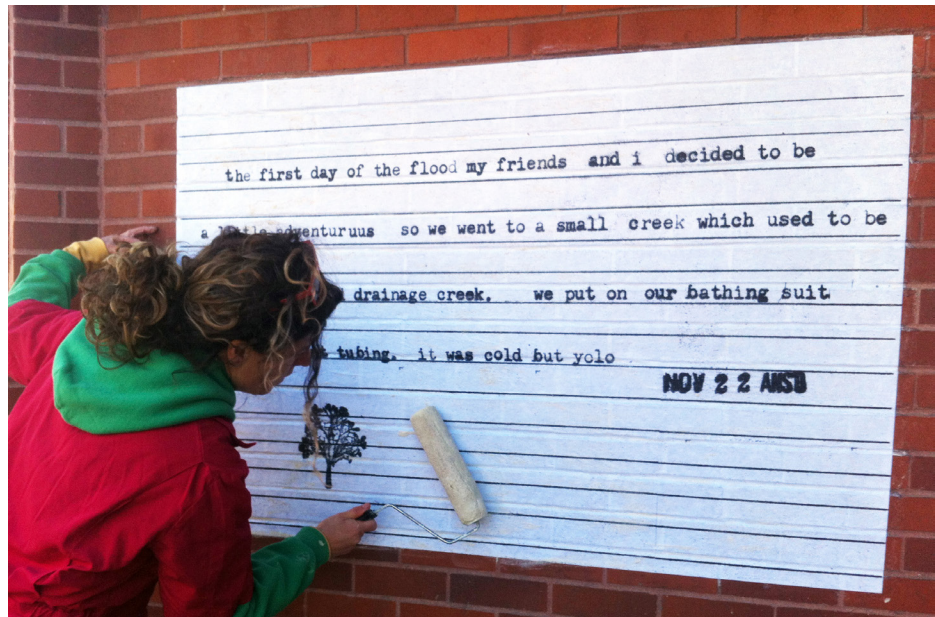 the first day of the flood my friends and i decided to be
a little adventuruus so we went to a small creek which used to be
drainage creek. we put on our bathing suit
tubing. it was cold but yolo
NOV 2 2 ANSD